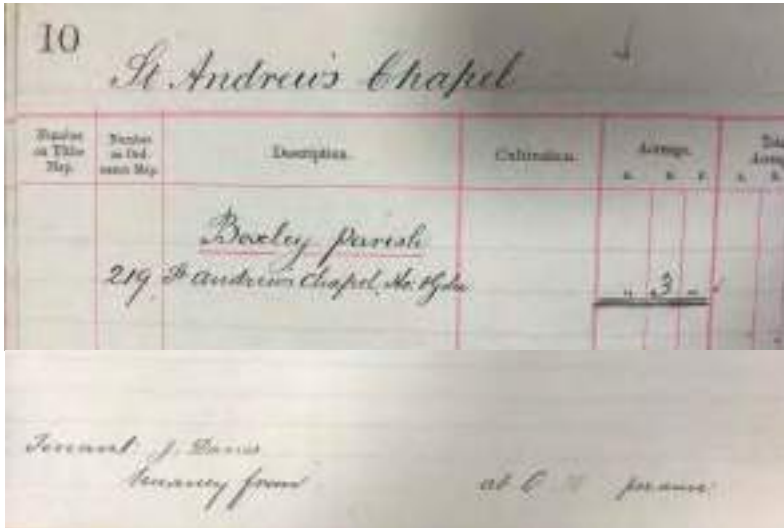 10
St Andrew's Chapel
Number on Tithe Map.
Number on Ord-nance Map.
Description.
Cultivation.
Acreage.
A. R. P.
Boxley Parish
219 St Andrews Chapel, Ho. & Gdn
" 3 "
Tenant J.
tenancy from at £ per ann: